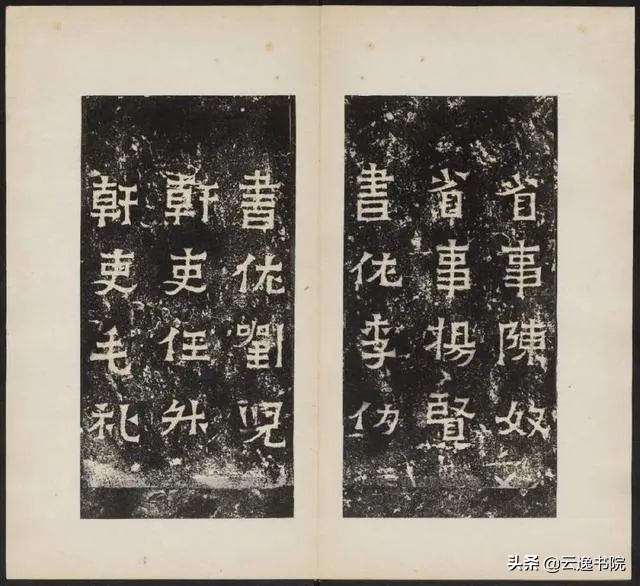 省事陳奴
省事揚賢
書佐李仂
書佐劉兒
幹吏任升
幹吏毛礼
头条 @云逸书院